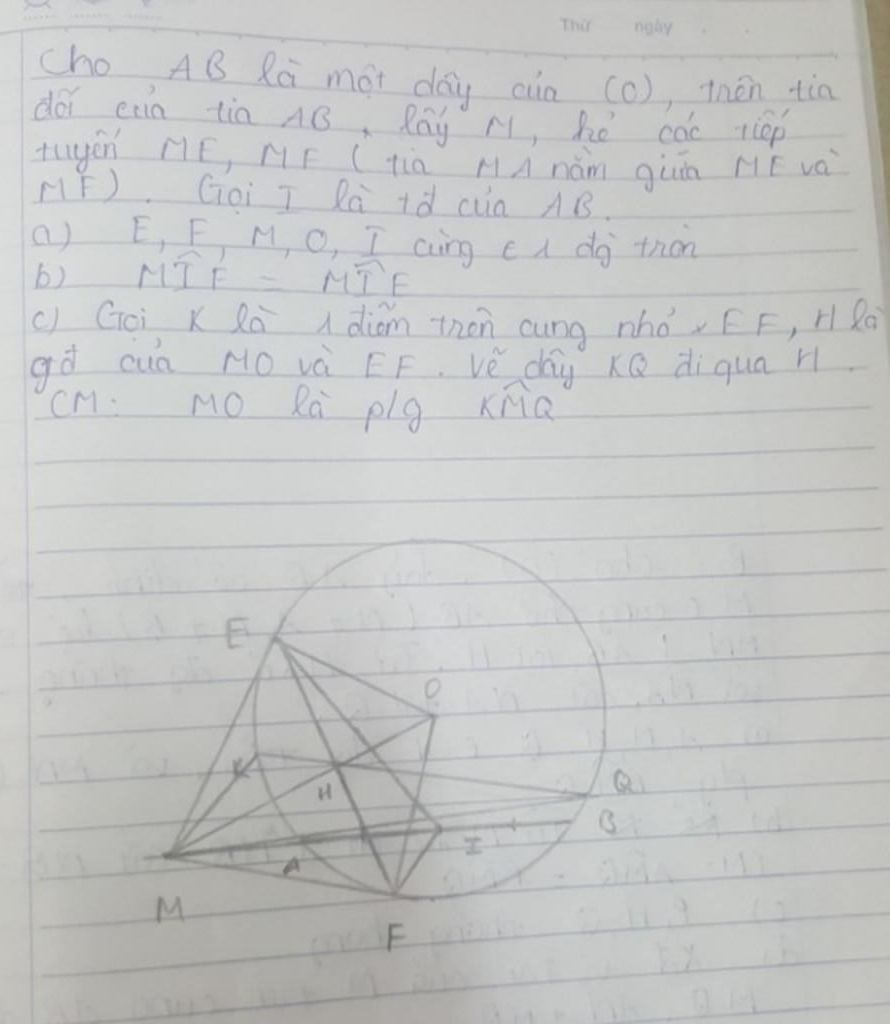 Thứ ngày
Cho AB là một dây của (O), trên tia
đối của tia AB, lấy M, kẻ các tiếp
tuyến ME, MF (tia MA nằm giữa ME và
MF). Gọi I là tđ của AB.
a) E, F, M, O, I cùng ∈ 1 độ tròn
b) MÎF = MÎE
c) Gọi K là 1 điểm trên cung nhỏ EF, H là
gđ của MO và EF. Vẽ dây KQ đi qua H.
CM: MO là p/g KM̂Q
E
O
K
H
Q
B
I
A
M
F